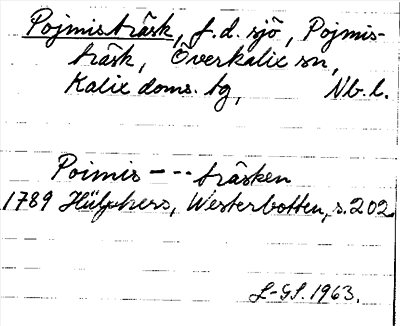 Pojmisträsk, f.d. sjö, Pojmis-
träsk, Överkalix sn,
Kalix doms. tg, Nb. l.
Poimis - - - träsken
1789 Hülphers, Westerbotten, s. 202.
L-GS. 1963.